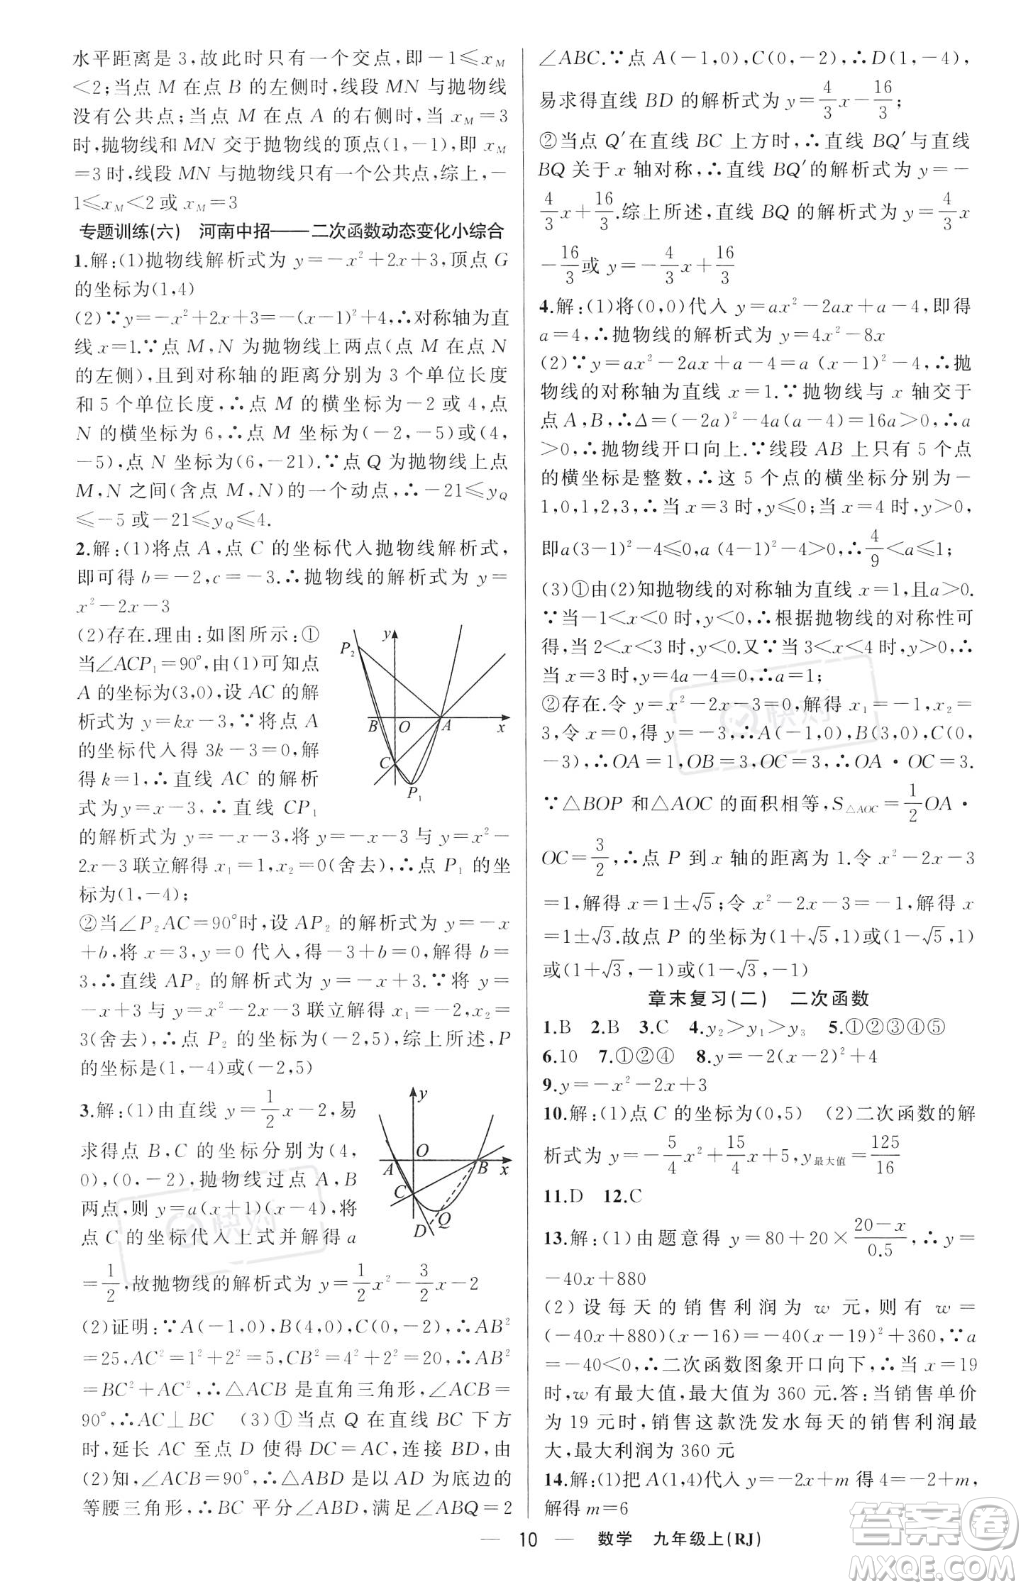 水平距离是3,故此时只有一个交点,即-1≤x_M
<2;当点M在点B的左侧时,线段MN与抛物线
没有公共点;当点M在点A的右侧时,当x_M=3
时,抛物线和MN交于抛物线的顶点(1,-1),即x_M
=3时,线段MN与抛物线只有一个公共点,综上,-
1≤x_M<2或x_M=3
专题训练(六) 河南中招——二次函数动态变化小综合
1.解:(1)抛物线解析式为y=-x²+2x+3,顶点G
的坐标为(1,4)
(2)∵y=-x²+2x+3=-(x-1)²+4,∴对称轴为直
线x=1.∵点M,N为抛物线上两点(点M在点N
的左侧),且到对称轴的距离分别为3个单位长度
和5个单位长度,∴点M的横坐标为-2或4,点
N的横坐标为6,∴点M的坐标为(-2,-5)或(4,
-5),点N的坐标为(6,-21).∵点Q为抛物线上点
M,N之间(含点M,N)的一个动点,∴-21≤y_Q
≤-5或-21≤y_Q≤4.
2.解:(1)将点A,点C的坐标代入抛物线解析式,
即可得b=-2,c=-3.∴抛物线的解析式为y=
x²-2x-3
(2)存在.理由:如图所示:①
当∠ACP₁=90°,由(1)可知点
A的坐标为(3,0),设AC的解
析式为y=kx-3,∵将点A
的坐标代入得3k-3=0,解
得k=1,∴直线AC的解析
式为y=x-3,∴直线CP₁
的解析式为y=-x-3,将y=-x-3与y=x²-
2x-3联立解得x₁=1,x₂=0(舍去),∴点P₁的坐
标为(1,-4);
②当∠P₂AC=90°时,设AP₂的解析式为y=-x
+b,将x=3,y=0代入,得-3+b=0,解得b=
3.∴直线AP₂的解析式为y=-x+3,将y=-x+
3与y=x²-2x-3联立解得x₁=-2,x₂=
3(舍去),∴点P₂的坐标为(-2,5),综上所述,P
的坐标是(1,-4)或(-2,5)
y
P₂
B
O
A
x
C
P₁
3.解:(1)由直线y=1/2x-2,易
求得点B,C的坐标分别为(4,
0),(0,-2),抛物线过点A,B
两点,则y=a(x+1)(x-4),将
点C的坐标代入上式并解得a
=1/2,故抛物线的解析式为y=1/2x²-3/2x-2
y
A
O
B
x
C
D
Q
(2)证明:∵A(-1,0),B(4,0),C(0,-2),∴AB²
=25,AC²=1²+2²=5,CB²=4²+2²=20,∴AB²
=BC²+AC²,∴△ABC是直角三角形,∴∠ACB=
90°,∴AC⊥BC (3)①当点Q在直线BC下方
时,延长AC至点D使得DC=AC,连接BD,由
(2)知,∠ACB=90°,∴△ABD是以AD为底边的
等腰三角形,∴BC平分∠ABD,满足∠ABQ=2
∠ABC.∵点A(-1,0),C(0,-2),∴D(1,-4),
易求得直线BD的解析式为y=4/3x-16/3;
②当点Q′在直线BC上方时,∴直线BQ′与直线
BQ关于x轴对称,∴直线BQ′的解析式为y=-
4/3x+16/3.综上所述,直线BQ的解析式为y=4/3x
-16/3或y=-4/3x+16/3
4.解:(1)将(0,0)代入y=ax²-2ax+a-4,即得
a=4,∴抛物线的解析式为y=4x²-8x
(2)∵y=ax²-2ax+a-4=a(x-1)²-4,∴抛
物线的对称轴为直线x=1.∵抛物线与x轴交于
点A,B,∴Δ=(-2a)²-4a(a-4)=16a>0,∴a
>0,∴抛物线开口向上.∵线段AB上只有5个点
的横坐标是整数,∴这5个点的横坐标分别为-
1,0,1,2,3,∴当x=3时,y≤0;当x=4时,y>0,
即a(3-1)²-4≤0,a(4-1)²-4>0,∴4/9<a≤1;
(3)①由(2)知抛物线的对称轴为直线x=1,且a>0.
∵当-1<x<0时,y<0,∴根据抛物线的对称性可
得,当2<x<3时,y<0;∵当3<x<4时,y>0,∴
当x=3时,y=0,∴y=4a-4=0,∴a=1;
②存在.令x²-2x-3=0,解得x₁=-1,x₂=3.
令x=0,则y=-3,∴A(-1,0),B(3,0),C(0,
-3),∴OA=1,OB=3,OC=3,∴OA·OC=3.
∵△BOP和△AOC的面积相等,S△AOC=1/2OA·
OC=3/2,∴点P到x轴的距离为1.令x²-2x-3
=1,解得x=1±√5;令x²-2x-3=-1,解得x
=1±√3.故点P的坐标为(1+√5,1)或(1-√5,1)
或(1+√3,-1)或(1-√3,-1)
章末复习(二) 二次函数
1.B 2.B 3.C 4.y₂>y₁>y₃ 5.①②③④⑤
6.10 7.①②④ 8.y=-2(x-2)²+4
9.y=-x²-2x+3
10.解:(1)点C的坐标为(0,5) (2)二次函数的解
析式为y=-5/4x²+15/4x+5,y最大值=125/16
11.D 12.C
13.解:(1)由题意得y=80+20×(20-x)/0.5,∴y=
-40x+880
(2)设每天的销售利润为w元,则有w=
(-40x+880)(x-16)=-40(x-19)²+360,∵a
=-40<0,∴二次函数图象开口向下,∴当x=19
时,w有最大值,最大值为360元.答:当销售单价
为19元时,销售这款洗发水每天的销售利润最
大,最大利润为360元
14.解:(1)把A(1,4)代入y=-x²-2x+4=-1-2+m,
解得m=6
10 数学 九年级上(RJ)
快对
快对
答案圈
MXQE.COM